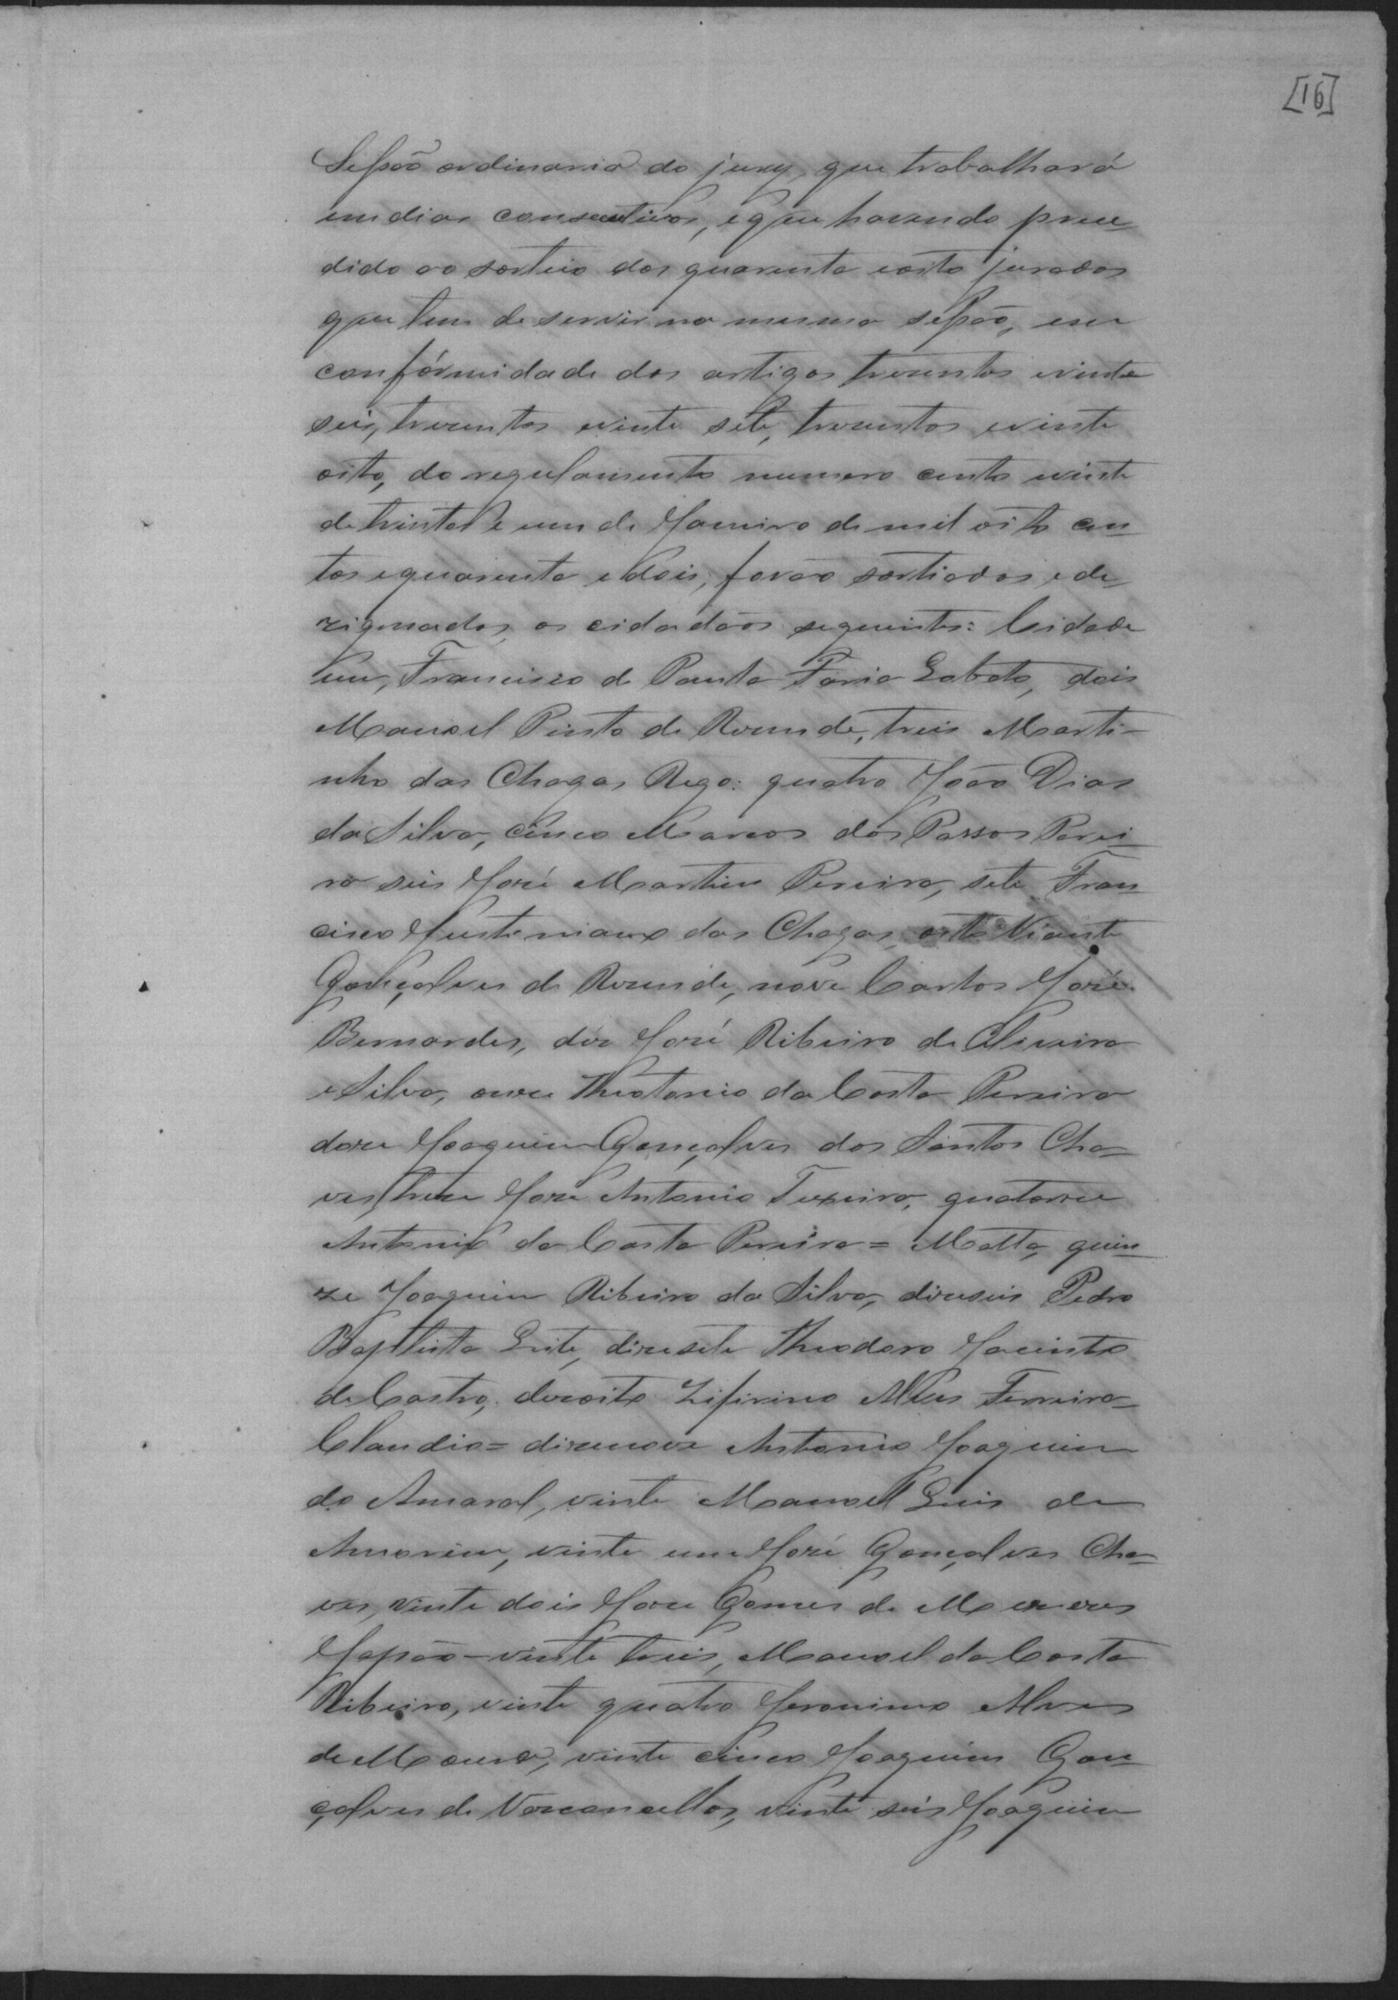 [16]
Sessão ordinaria do jury, que trabalhará
em dias consecutivos, e que havendo proce
dido ao sorteio dos quarenta e oito jurados
que tem de servir na mesma sessão, em
confórmidade dos artigos trezentos e vinte
seis, trezentos e vinte sete, trezentos e vinte
oito, do regulamento numero cento e vinte
de trinta e um de Janeiro de mil oito cen
tos e quarenta e dois, forão sortiados e de
zignados, os cidadãos seguintes: Cidade
um, Francisco de Paula Faria Lobato, dois
Manoel Pinto de Rezende, treis Marti-
nho das Chagas Rego: quatro João Dias
da Silva, cinco Marcos dos Passos Perei
ra seis José Martins Pereira, sete Fran
cisco Justiniano das Chagas, oito Vicente
Gonçalves de Rezende, nove Carlos José
Bernardes, dez José Ribeiro de Oliveira
e Silva, onze Theotonio da Costa Pereira
doze Joaquim Gonçalves dos Santos Cha=
ves, treze José Antonio Teixeira, quatorze
Antonio da Costa Pereira = Motta, quin
ze Joaquim Ribeiro da Silva, dezeseis Pedro
Baptista Leite, dizesete Theodoro Jacintho
de Castro, dezoito Zifirino Alves Ferreira=
Claudio= dizenove Antonio Joaquim
do Amaral, vinte Manoel Luis de
Amorim, vinte um José Gonçalves Cha=
ves, vinte dois José Gomes de Menezes
Japão - vinte treis, Manoel da Costa
Ribeiro, vinte quatro Jeronimo Alves
de Moura, vinte cinco Joaquim Gon
çalves de Vasconcellos, vinte seis Joaquim